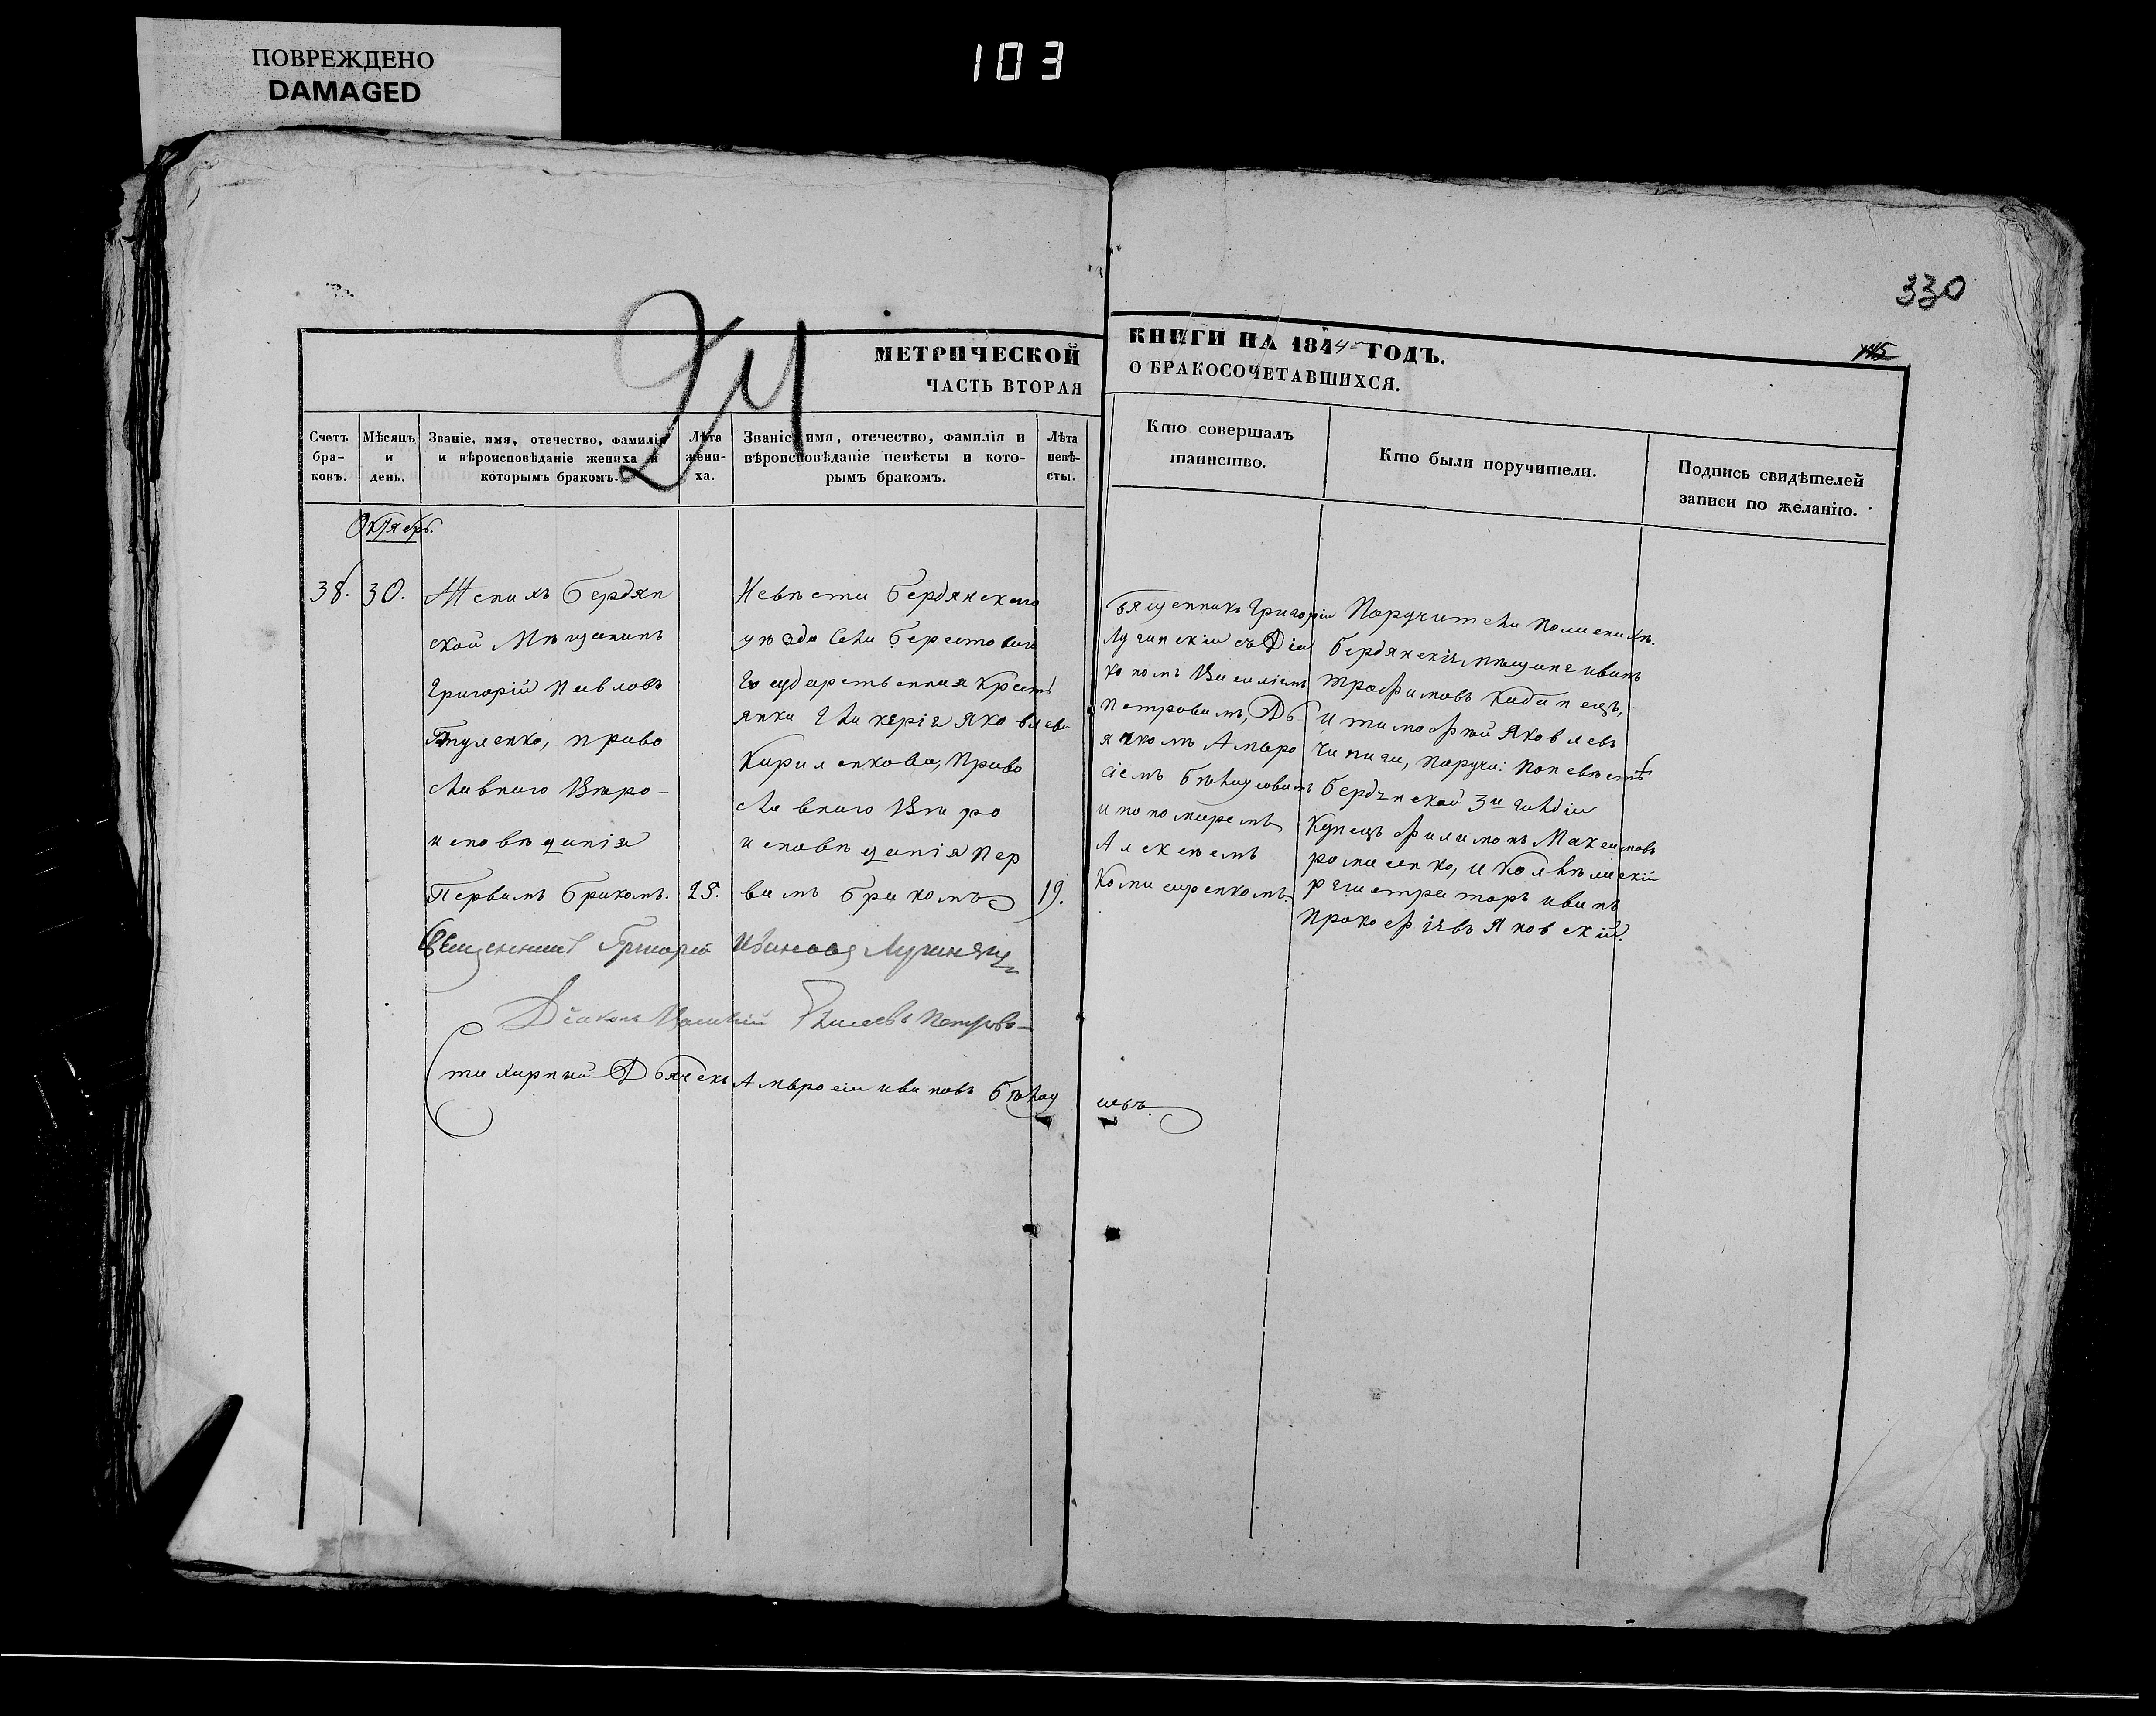 ПОВРЕЖДЕНО
DAMAGED
103
330
24
МЕТРИЧЕСКОЙ
ЧАСТЬ ВТОРАЯ
КНИГИ НА 1844 ГОДЪ.
О БРАКОСОЧЕТАВШИХСЯ.
145
Счетъ бра-
ковъ.
Мѣсяцъ
и
день.
Званіе, имя, отечество, фамилія
и вѣроисповѣданіе жениха и
которымъ бракомъ.
Лѣта
жени-
ха.
Званіе, имя, отечество, фамилія и
вѣроисповѣданіе невѣсты и кото-
рымъ бракомъ.
Лѣта
невѣ-
сты.
Кто совершалъ
таинство.
Кто были поручители.
Подпись свидѣтелей
записи по желанію.
Октябрь.
38.
30.
Женихъ Бердян
ской Мѣщанинъ
Григорій Павловъ
право
славнаго Вѣро-
исповѣданія
Первымъ бракомъ.
25.
Невѣста Бердянскаго
уѣзда Села Берестоваго
Государственная Кресть
янка Гликерія Яковлева
Кириленкова, Право
славнаго Вѣро
исповѣданія Пер
вымъ бракомъ
19.
Священникъ Григорій
Лучинскій съ Діа
кономъ Василіемъ
Петровымъ, Дь
ячкомъ Амвро
сіемъ
и пономаремъ
Алексѣемъ
Поручители по женихѣ.
Бердянскіе мѣщане Иванъ
Трофимовъ Кабанецъ,
и Тимофѣй Яковлевъ
Чипига, Поручи: по невѣстѣ
Бердянской 3й гильдіи
Купецъ Филимонъ Максимовъ
Романенко, и Коллѣжскій
регистраторъ Иванъ
Прокофіевъ Яновскій.
Священникъ Григорій Ивановъ
Діаконъ Василій Петровъ
Дьячекъ Амвросій Ивановъ